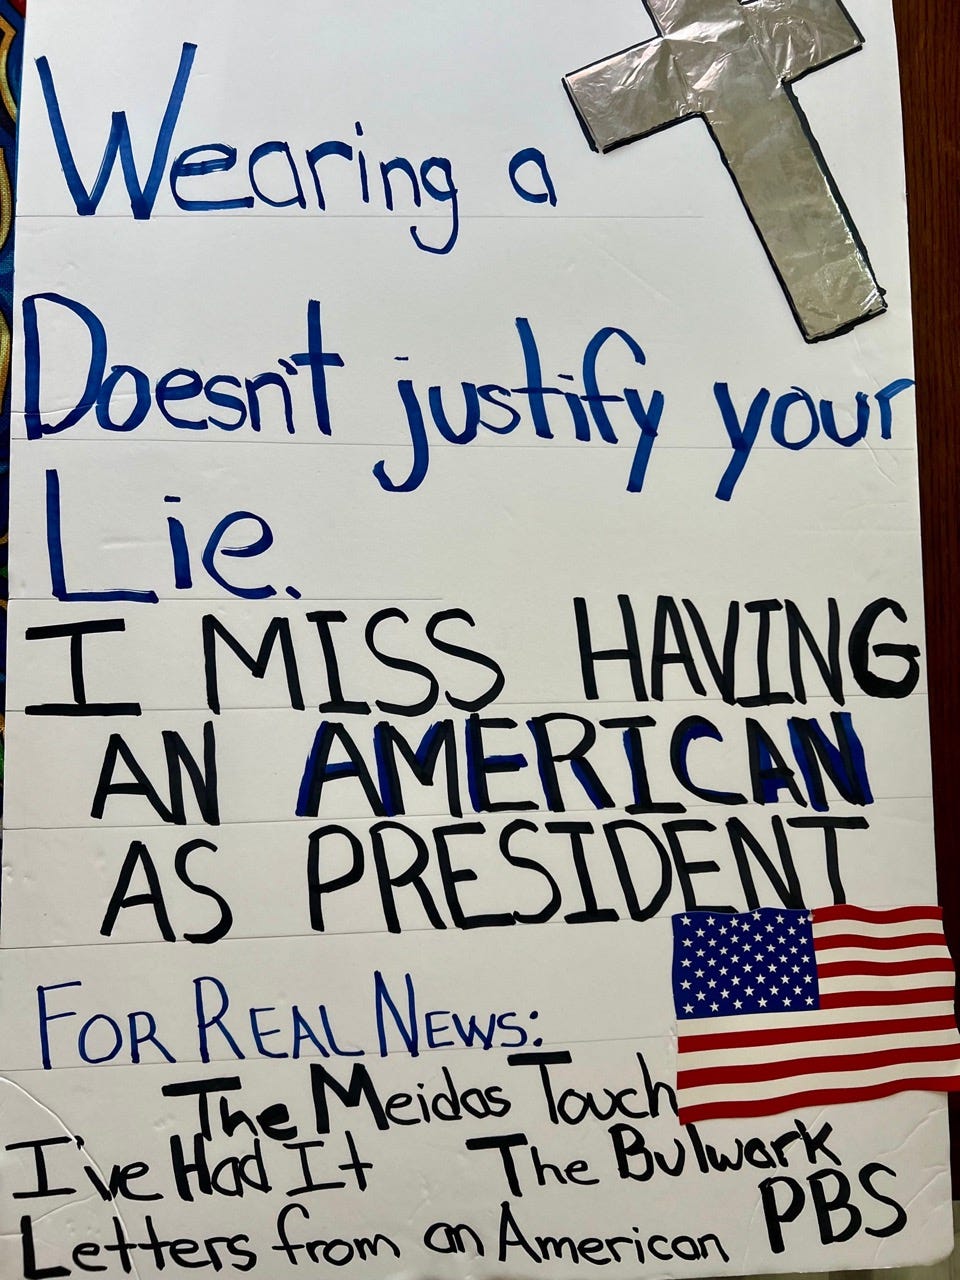 Wearing a
Doesn't justify your
Lie.
I MISS HAVING
AN AMERICAN
AS PRESIDENT
FOR REAL NEWS:
The Meidas Touch
I've Had It The Bulwark
Letters from an American PBS